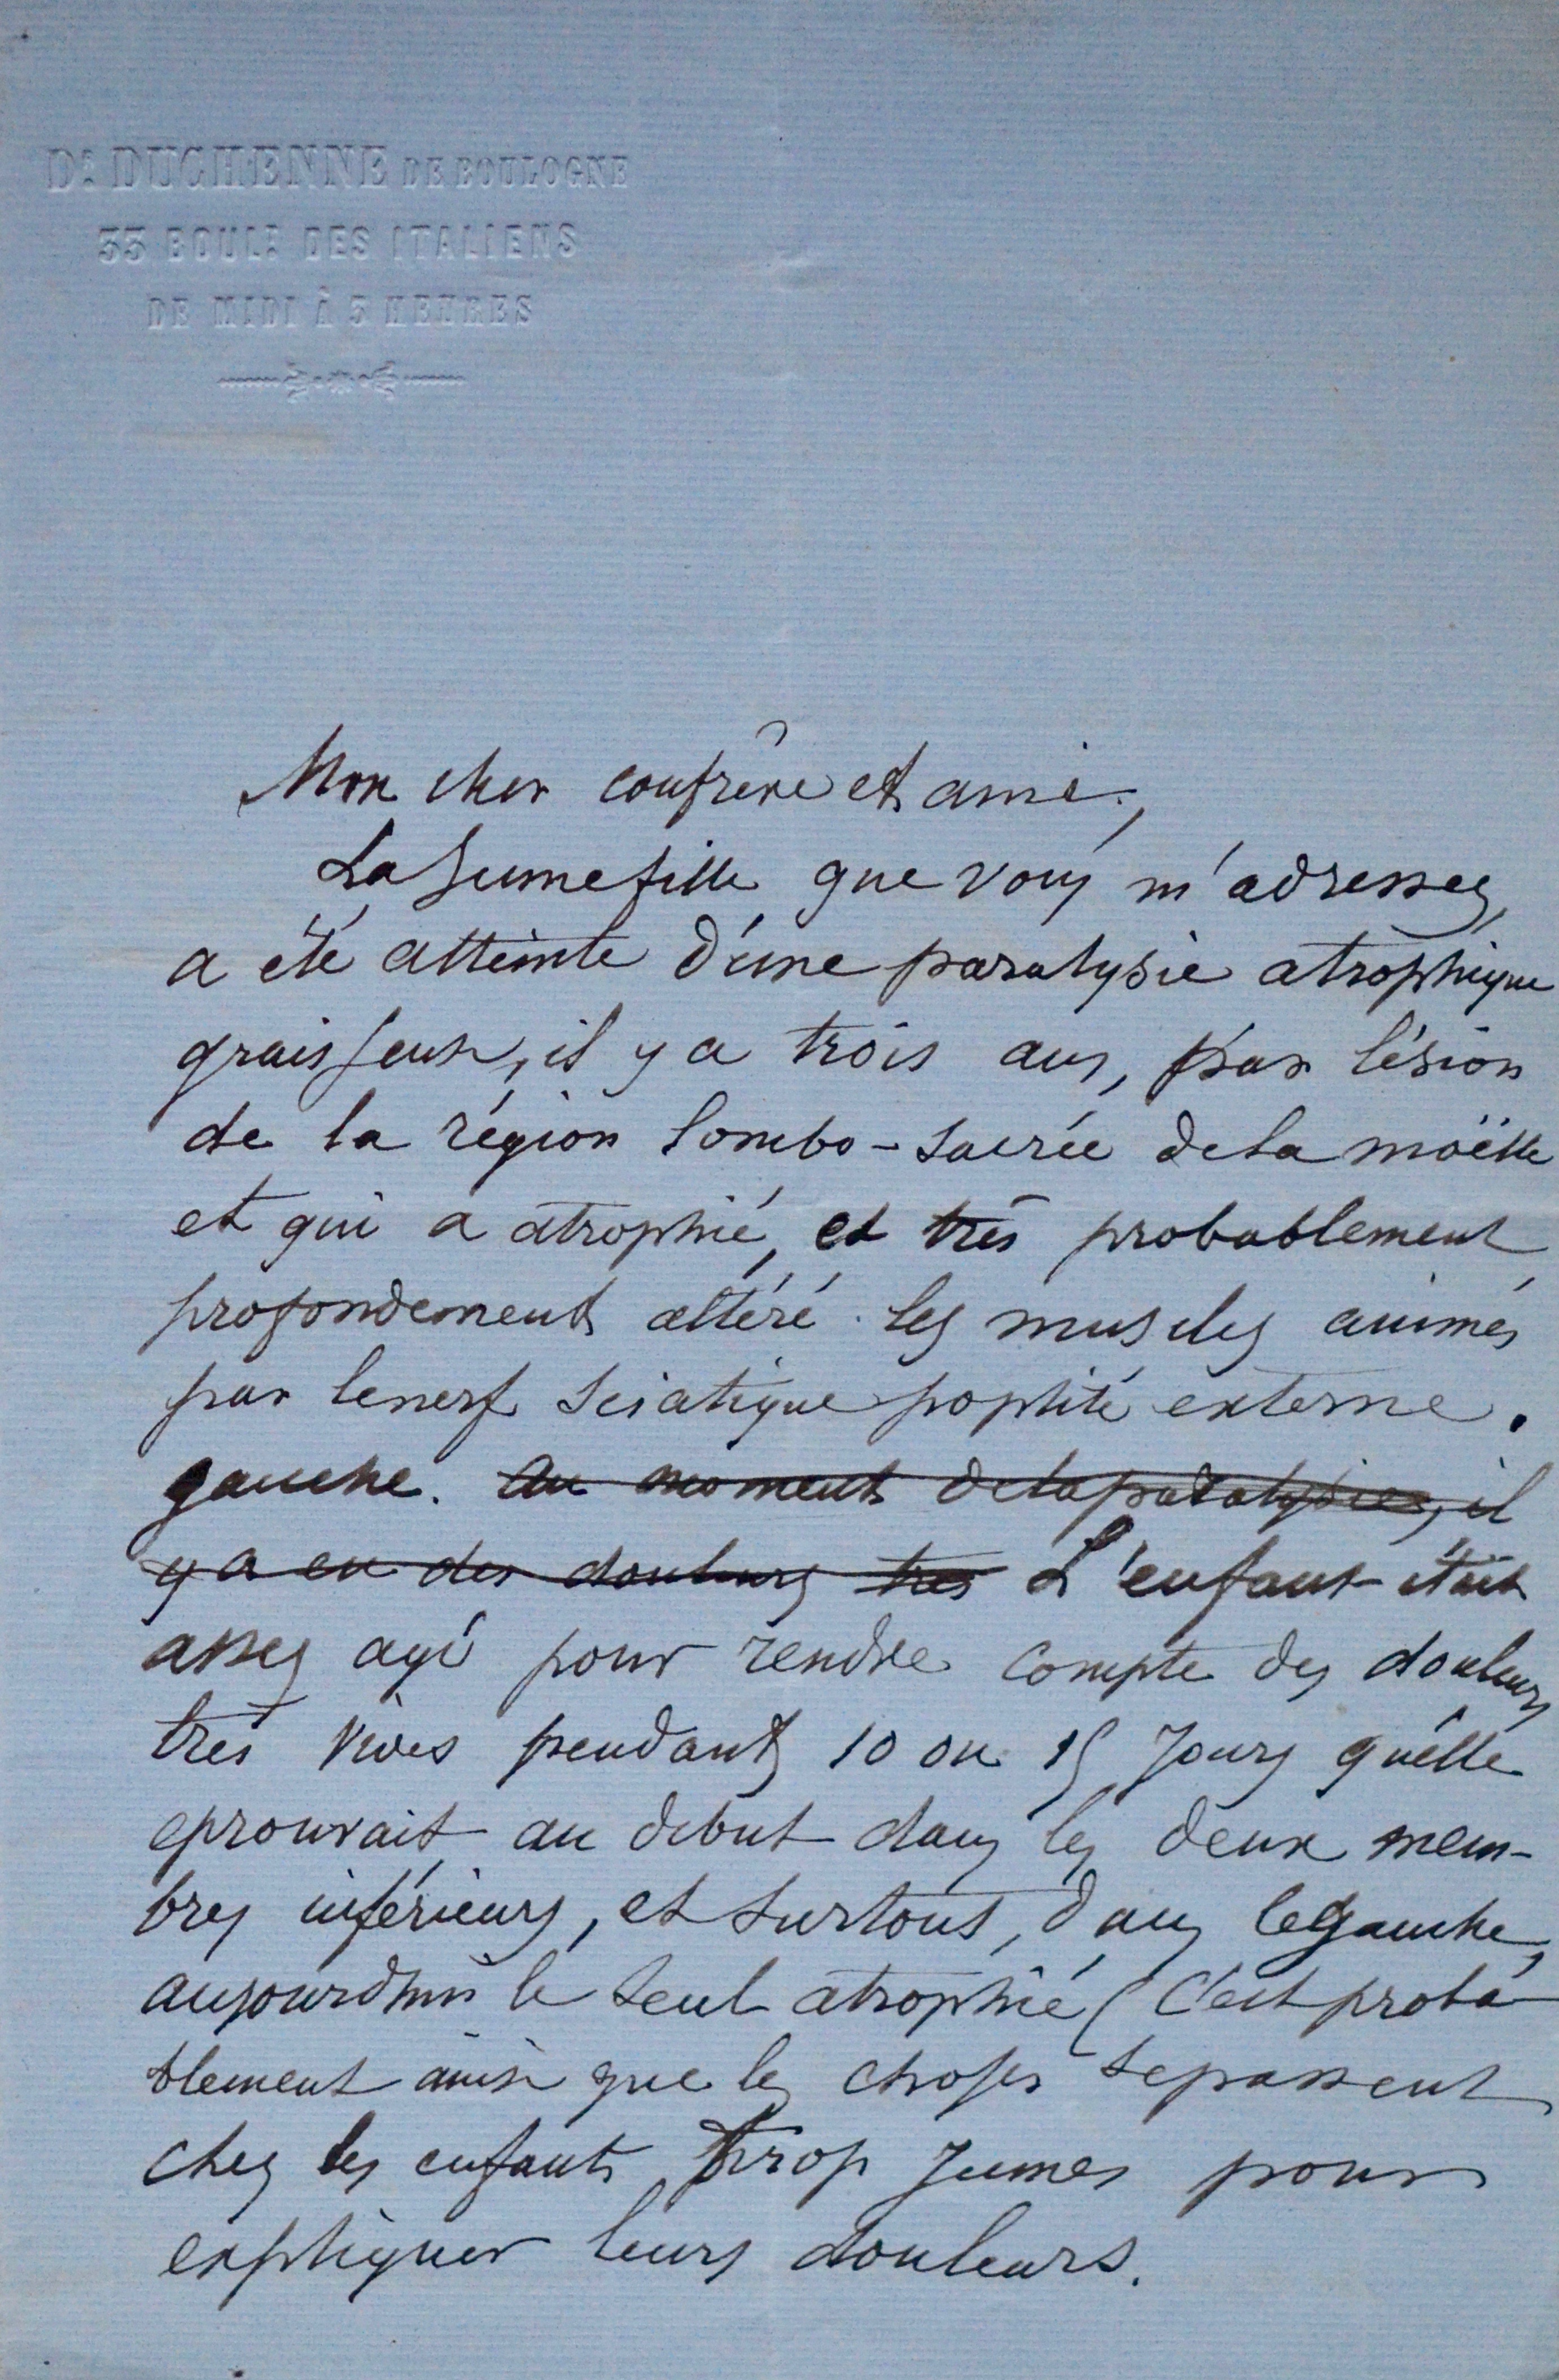 Dr DUCHENNE DE BOULOGNE
33 BOULD DES ITALIENS
DE MIDI À 3 HEURES
Mon cher confrère et ami,
La jeune fille que vous m'adressez,
a été atteinte d'une paralysie atrophique
graisseuse, il y a trois ans, par lésion
de la région lombo-sacrée de la moëlle
et qui a atrophié, et très probablement
profondement altéré les muscles animés
par le nerf sciatique poplité externe.
gauche. Au moment de la paralysie, il
y a eu des douleurs tres L'enfant était
assez agé pour rendre compte des douleurs
très vives pendant 10 ou 15 jours qu'elle
eprouvait au debut dans les deux mem-
bres inférieurs, et surtout, dans le gauche,
aujourd'hui le seul atrophié (C'est proba-
blement ainsi que les choses se passent
chez les enfants trop jeunes pour
expliquer leurs douleurs.